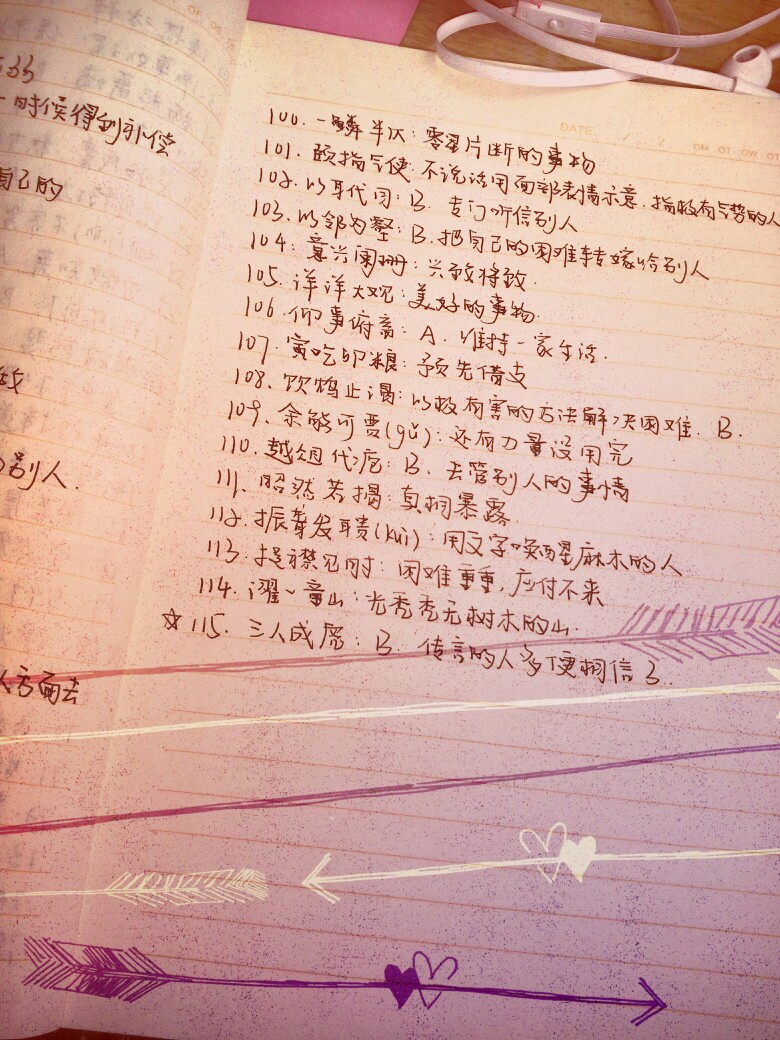 时候得到补偿
自己的
别人.
方面去
DATE
100. 一鳞半爪: 零星片断的事物
101. 颐指气使: 不说话用面部表情示意. 指极有气势的人
102. 以耳代目: B. 专门听信别人
103. 以邻为壑: B. 把自己的困难转嫁给别人
104. 意兴阑珊: 兴致将致.
105. 洋洋大观: 美好的事物.
106. 仰事俯畜: A. 维持一家生活.
107. 寅吃卯粮: 预先借支
108. 饮鸩止渴: 以极有害的方法解决困难. B.
109. 余勇可贾(gǔ): 还有力量没用完
110. 越俎代庖: B. 去管别人的事情
111. 昭然若揭: 真相暴露.
112. 振聋发聩(kuì): 用文字唤醒麻木的人
113. 捉襟见肘: 困难重重, 应付不来
114. 濯~童山: 光秃秃无树木的山.
☆115. 三人成虎: B. 传言的人多便相信了.